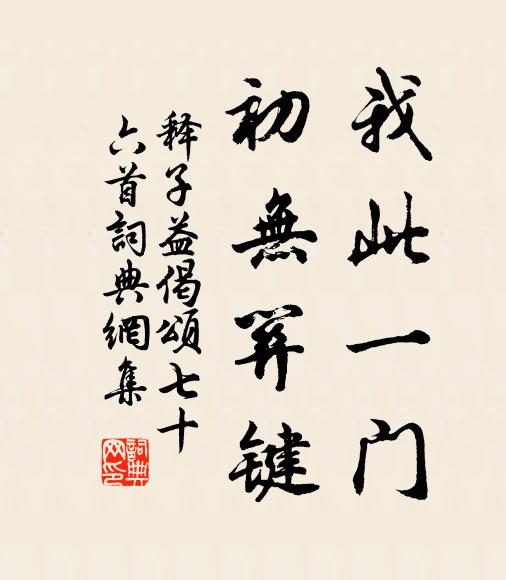 我此一门
初無关键
释子益偈頌七十
六首詞典網集
詞典
网印